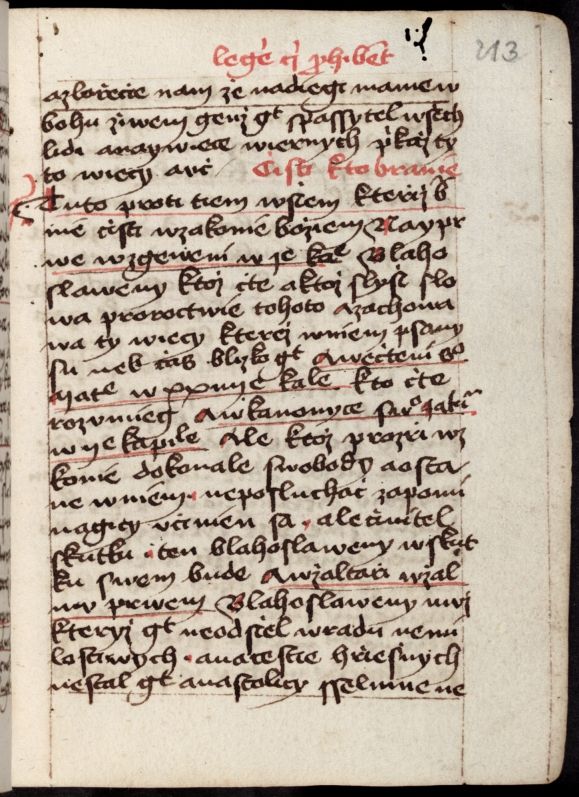 213
legē cz ꝓhibēt
azlorzecie nam ze nadiegi mamew
bohu ziwem genz gt spassytel wssech
lidi anaywiece wiernych prikaz ty
to wiecy aucz Cisti kto branie
Tuto proti tiem wssem kterziz b
nie cisti wzakonie boziem Naypr
we wzgeweni w je kāᵉ Blaho
slaweny ktoz cte aktoz slyssi slo
wa proroctwie tohoto azachowa
wa ty wiecy kterez wniem psany
su neb czas blizko gt Awecteni sᵒ
Matᵉ w xxiiii kaᵖle kto cte
rozumieg Awkanonyce swᵒ Jakuᵃ
w je kapitle Ale ktoz prozrzi wz
konie dokonale swobody aosta
ne wniem neposluchacz zapomi
nagicy vczinien sa aleczinitel
skutku ten blahoslaweny wskut
ku swem bude Awzaltarzi wzal
mu prwem Blahoslaweny muz
kteryz gt neodssel wradu nemi
lostiwych anacestie hrziessnych
nestal gt anastolicy sselmine ne